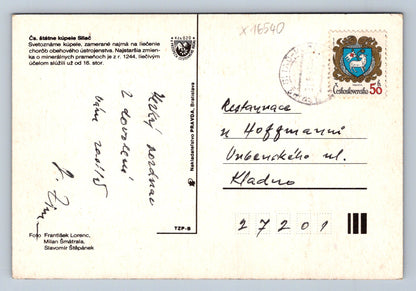 Čs. štátne kúpele Sliač
Svetoznáme kúpele, zamerané najmä na liečenie
chorôb obehového ústrojenstva. Najstaršia zmien-
ka o minerálnych prameňoch je z r. 1244, liečivým
účelom slúžili už od 16. stor.
Hezký pozdrav
z dovolené
Vám zasílá
Foto František Lorenc,
Milan Šmátrala,
Slavomír Štěpánek
Nakladateľstvo PRAVDA, Bratislava
TZP-B
x 16540
Československo 50
Restaurace
u Hoffmannů
Urbenského ul.
Kladno
27201